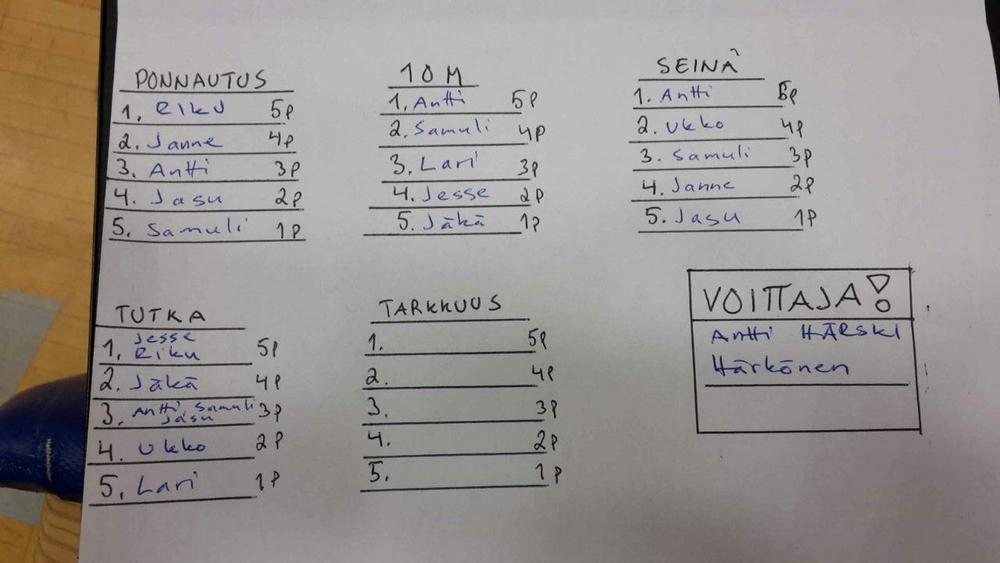 PONNAUTUS
1. Riku 5p
2. Janne 4p
3. Antti 3p
4. Jasu 2p
5. Samuli 1p
10 M
1. Antti 5p
2. Samuli 4p
3. Lari 3p
4. Jesse 2p
5. Jäkä 1p
SEINÄ
1. Antti 5p
2. Ukko 4p
3. Samuli 3p
4. Janne 2p
5. Jasu 1p
TUTKA
1. Jesse
Riku 5p
2. Jäkä 4p
3. Antti, Samuli
Jasu 3p
4. Ukko 2p
5. Lari 1p
TARKKUUS
1. 5p
2. 4p
3. 3p
4. 2p
5. 1p
VOITTAJA!
Antti HÄRSKI
Härkönen